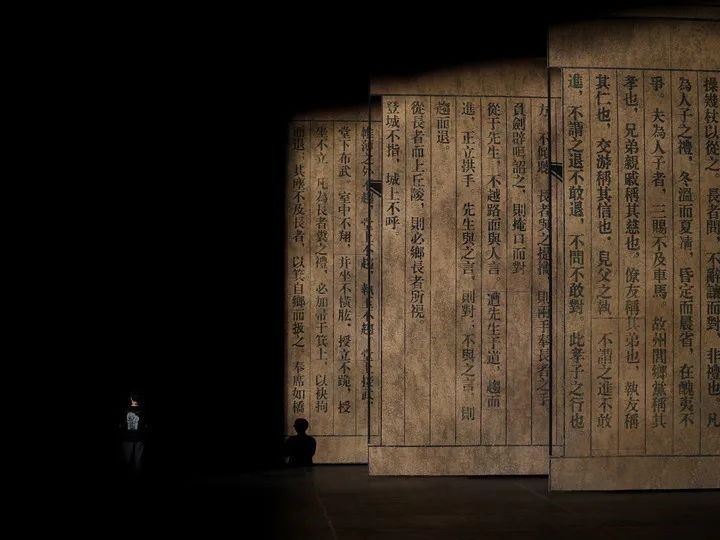 操幾杖以從之。長者問，不辭讓而對，非禮也。凡
為人子之禮，冬溫而夏凊，昏定而晨省，在醜夷不
爭。夫為人子者，三賜不及車馬 故州閭鄉黨稱其
孝也，兄弟親戚稱其慈也，僚友稱其弟也，執友稱
其仁也，交游稱其信也。見父之執 不謂之進不敢
進，不謂之退不敢退，不問不敢對 此孝子之行也
方，不傾聽 長者與之提攜 則兩手奉長者之手
負劍辟咡詔之，則掩口而對
從于先生，不越路而與人言 遭先生于道，趨而
進，正立拱手 先生與之言，則對；不與之言，則
趨而退
從長者而上丘陵，則必鄉長者所視。
登城不指，城上不呼。
帷薄之外不趨，堂上不趨，執玉不趨 堂上接武，
堂下布武 室中不翔，并坐不橫肱，授立不跪，授
坐不立 凡為長者糞之禮，必加帚于箕上，以袂拘
而退；其塵不及長者，以箕自鄉而扱之。奉席如橋